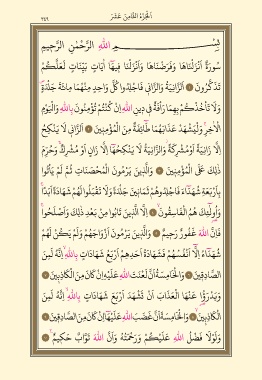 الجزء الثامن عشر ٣٤٩
بسم الله الرحمٰن الرحيم
سورة أنزلناها وفرضناها وأنزلنا فيها آيات بينات لعلكم
تذكرون الزانية والزاني فاجلدوا كل واحد منهما مائة جلدة
ولا تأخذكم بهما رأفة في دين الله إن كنتم تؤمنون بالله واليوم
الآخر وليشهد عذابهما طائفة من المؤمنين الزاني لا ينكح
إلا زانية أو مشركة والزانية لا ينكحها إلا زان أو مشرك وحرم
ذلك على المؤمنين والذين يرمون المحصنات ثم لم يأتوا
بأربعة شهداء فاجلدوهم ثمانين جلدة ولا تقبلوا لهم شهادة أبدا
وأولئك هم الفاسقون إلا الذين تابوا من بعد ذلك وأصلحوا
فإن الله غفور رحيم والذين يرمون أزواجهم ولم يكن لهم
شهداء إلا أنفسهم فشهادة أحدهم أربع شهادات بالله إنه لمن
الصادقين والخامسة أن لعنت الله عليه إن كان من الكاذبين
ويدرؤا عنها العذاب أن تشهد أربع شهادات بالله إنه لمن
الكاذبين والخامسة أن غضب الله عليها إن كان من الصادقين
ولولا فضل الله عليكم ورحمته وأن الله تواب حكيم